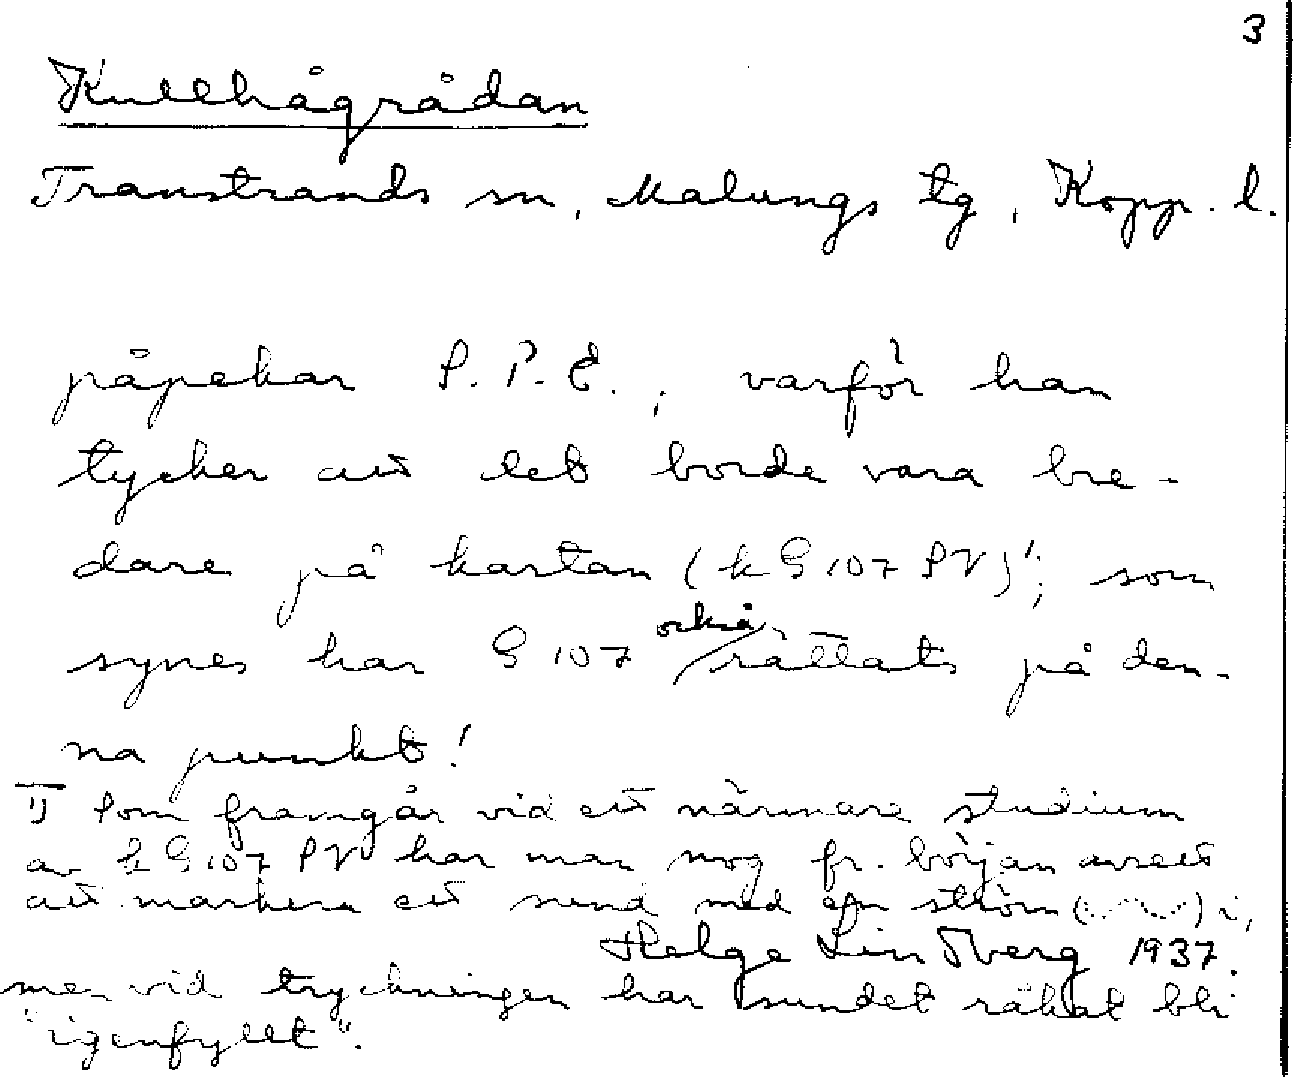 3
Kullhågrådan
Transtrands sn, Malungs tg, Kopp. l.
påpekar S. P. E., varför han
tycker att det borde vara bre-
dare på kartan (k G 107 SV)¹⁾; som
synes har G 107 också rättats på den-
na punkt!
1) Som framgår vid ett närmare studium
av k G 107 SV har man nog fr. början avsett
att markera ett sund med en ström (.......) i,
Helge Lindberg 1937.
men vid tryckningen har sundet råkat bli
"igenfyllt".